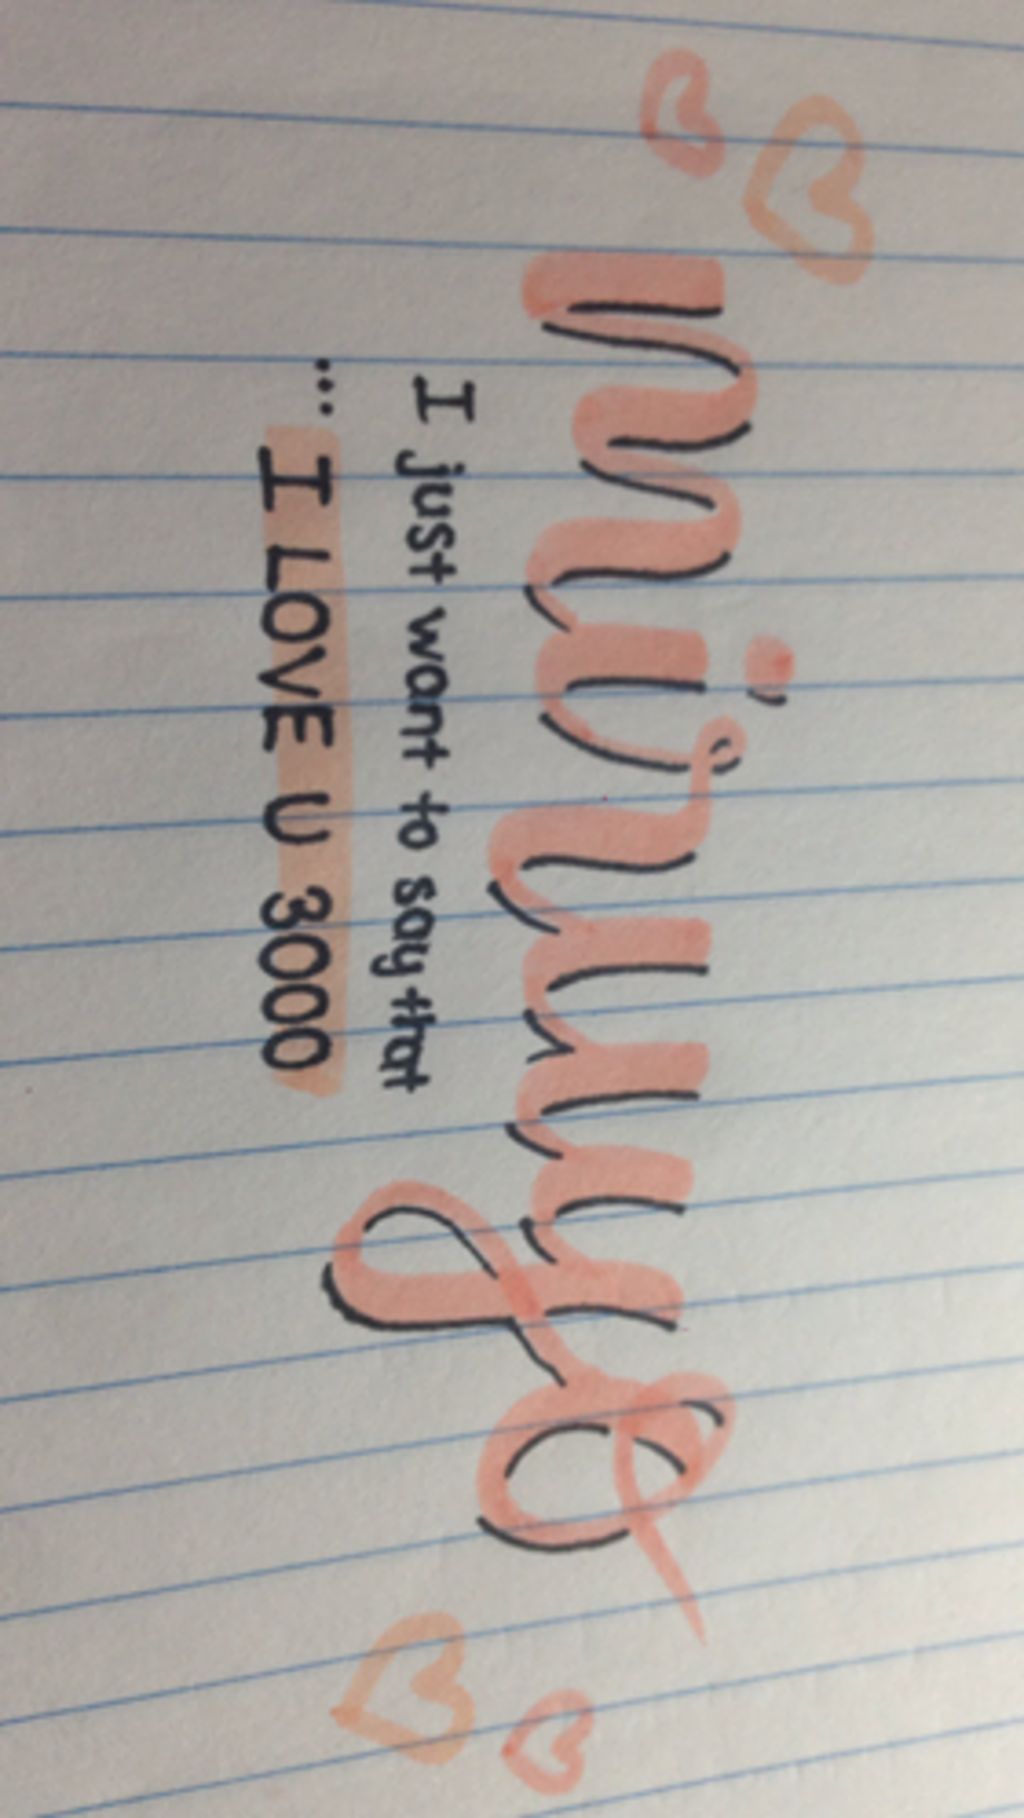 miruyo
I just want to say that
... I LOVE U 3000